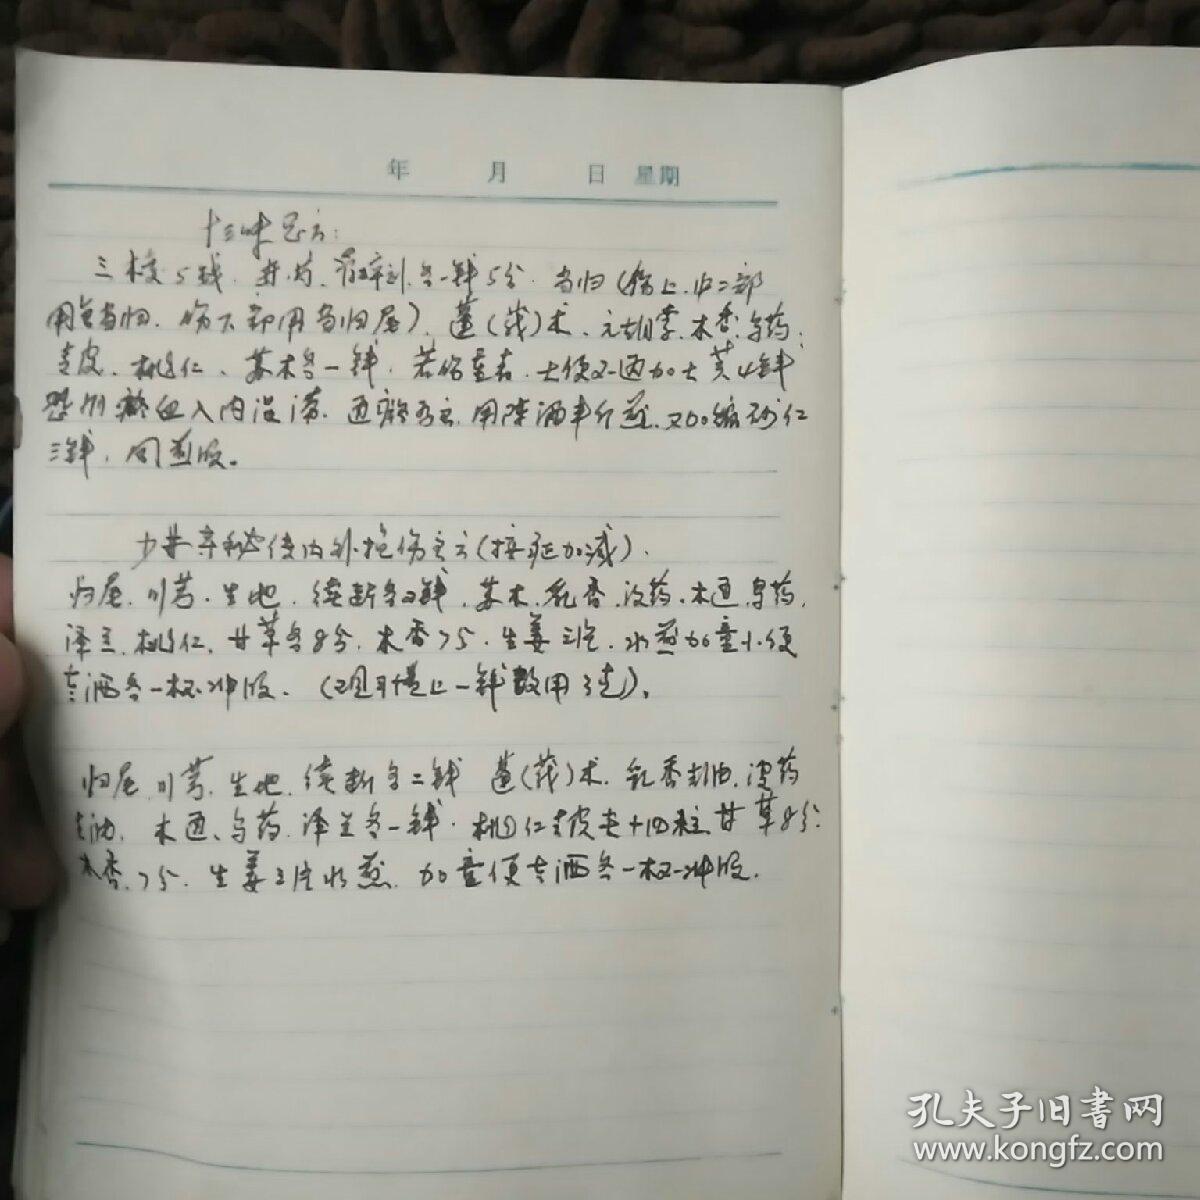 年 月 日 星期
十三味总方：
三棱5钱、赤芍、骨碎补各一钱5分、当归(伤上、中二部
用全当归、伤下部用当归尾)、蓬(莪)术、元胡索、木香、乌药、
青皮、桃仁、苏木各一钱、若伤重者、大便不通加大黄4钱
恐有瘀血入内涩滞、通瘀为主、用陈酒半斤煎、又加缩砂仁
三钱、同煎服。
少林寺秘传内外损伤主方(按症加减)、
归尾、川芎、生地、续断各2钱、苏木、乳香、没药、木通、乌药、
泽兰、桃仁、甘草各8分、木香7分、生姜三片、水煎加童小便
老酒各一杯冲服、
归尾、川芎、生地、续断各二钱 蓬(莪)术、乳香去油、没药
去油、木通、乌药、泽兰各一钱、桃仁去皮尖十四粒、甘草8分、
木香7分、生姜3片水煎、加童便老酒各一杯冲服、
孔夫子旧书网
www.kongfz.com